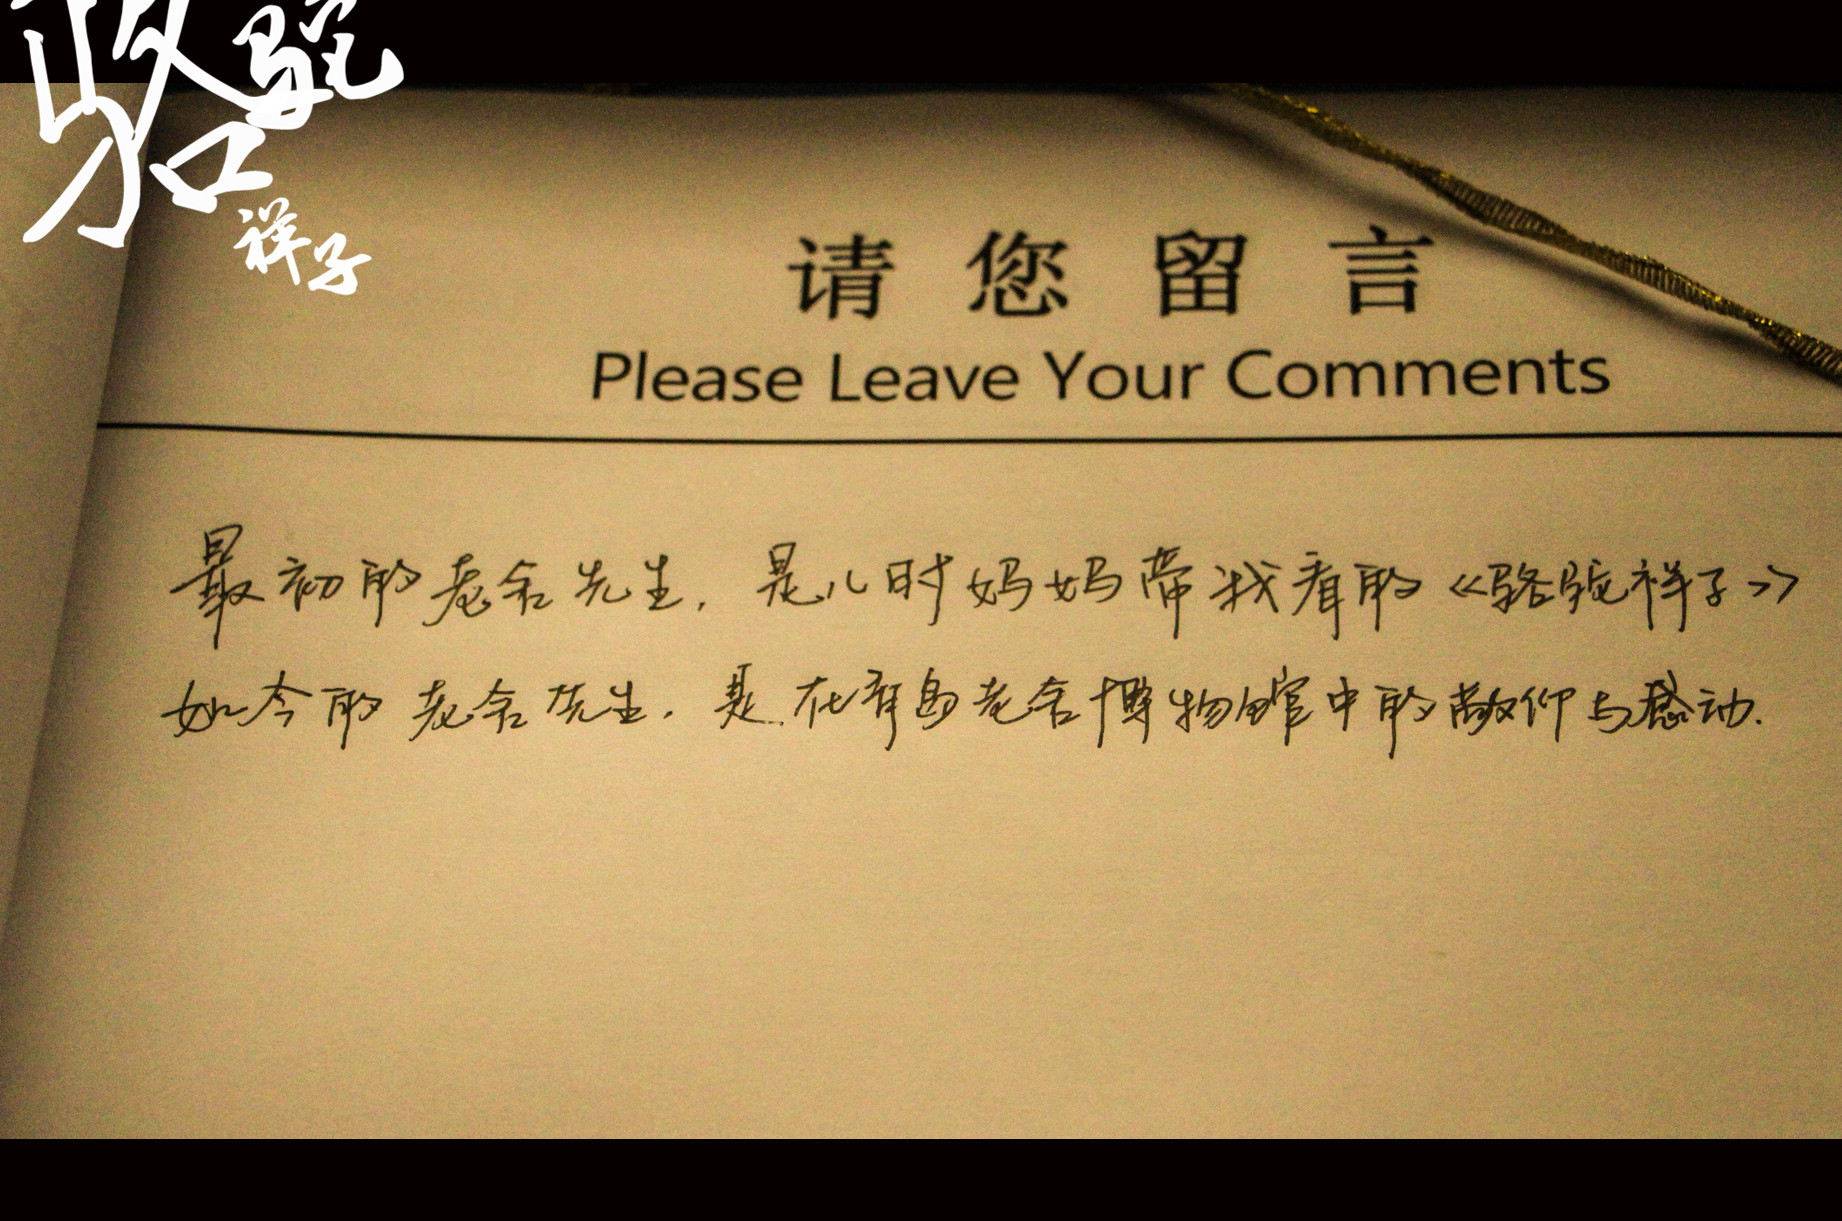 骆驼
祥子
请您留言
Please Leave Your Comments
最初的老舍先生，是儿时妈妈带我看的《骆驼祥子》
如今的老舍先生，是在青岛老舍博物馆中的敬仰与感动.